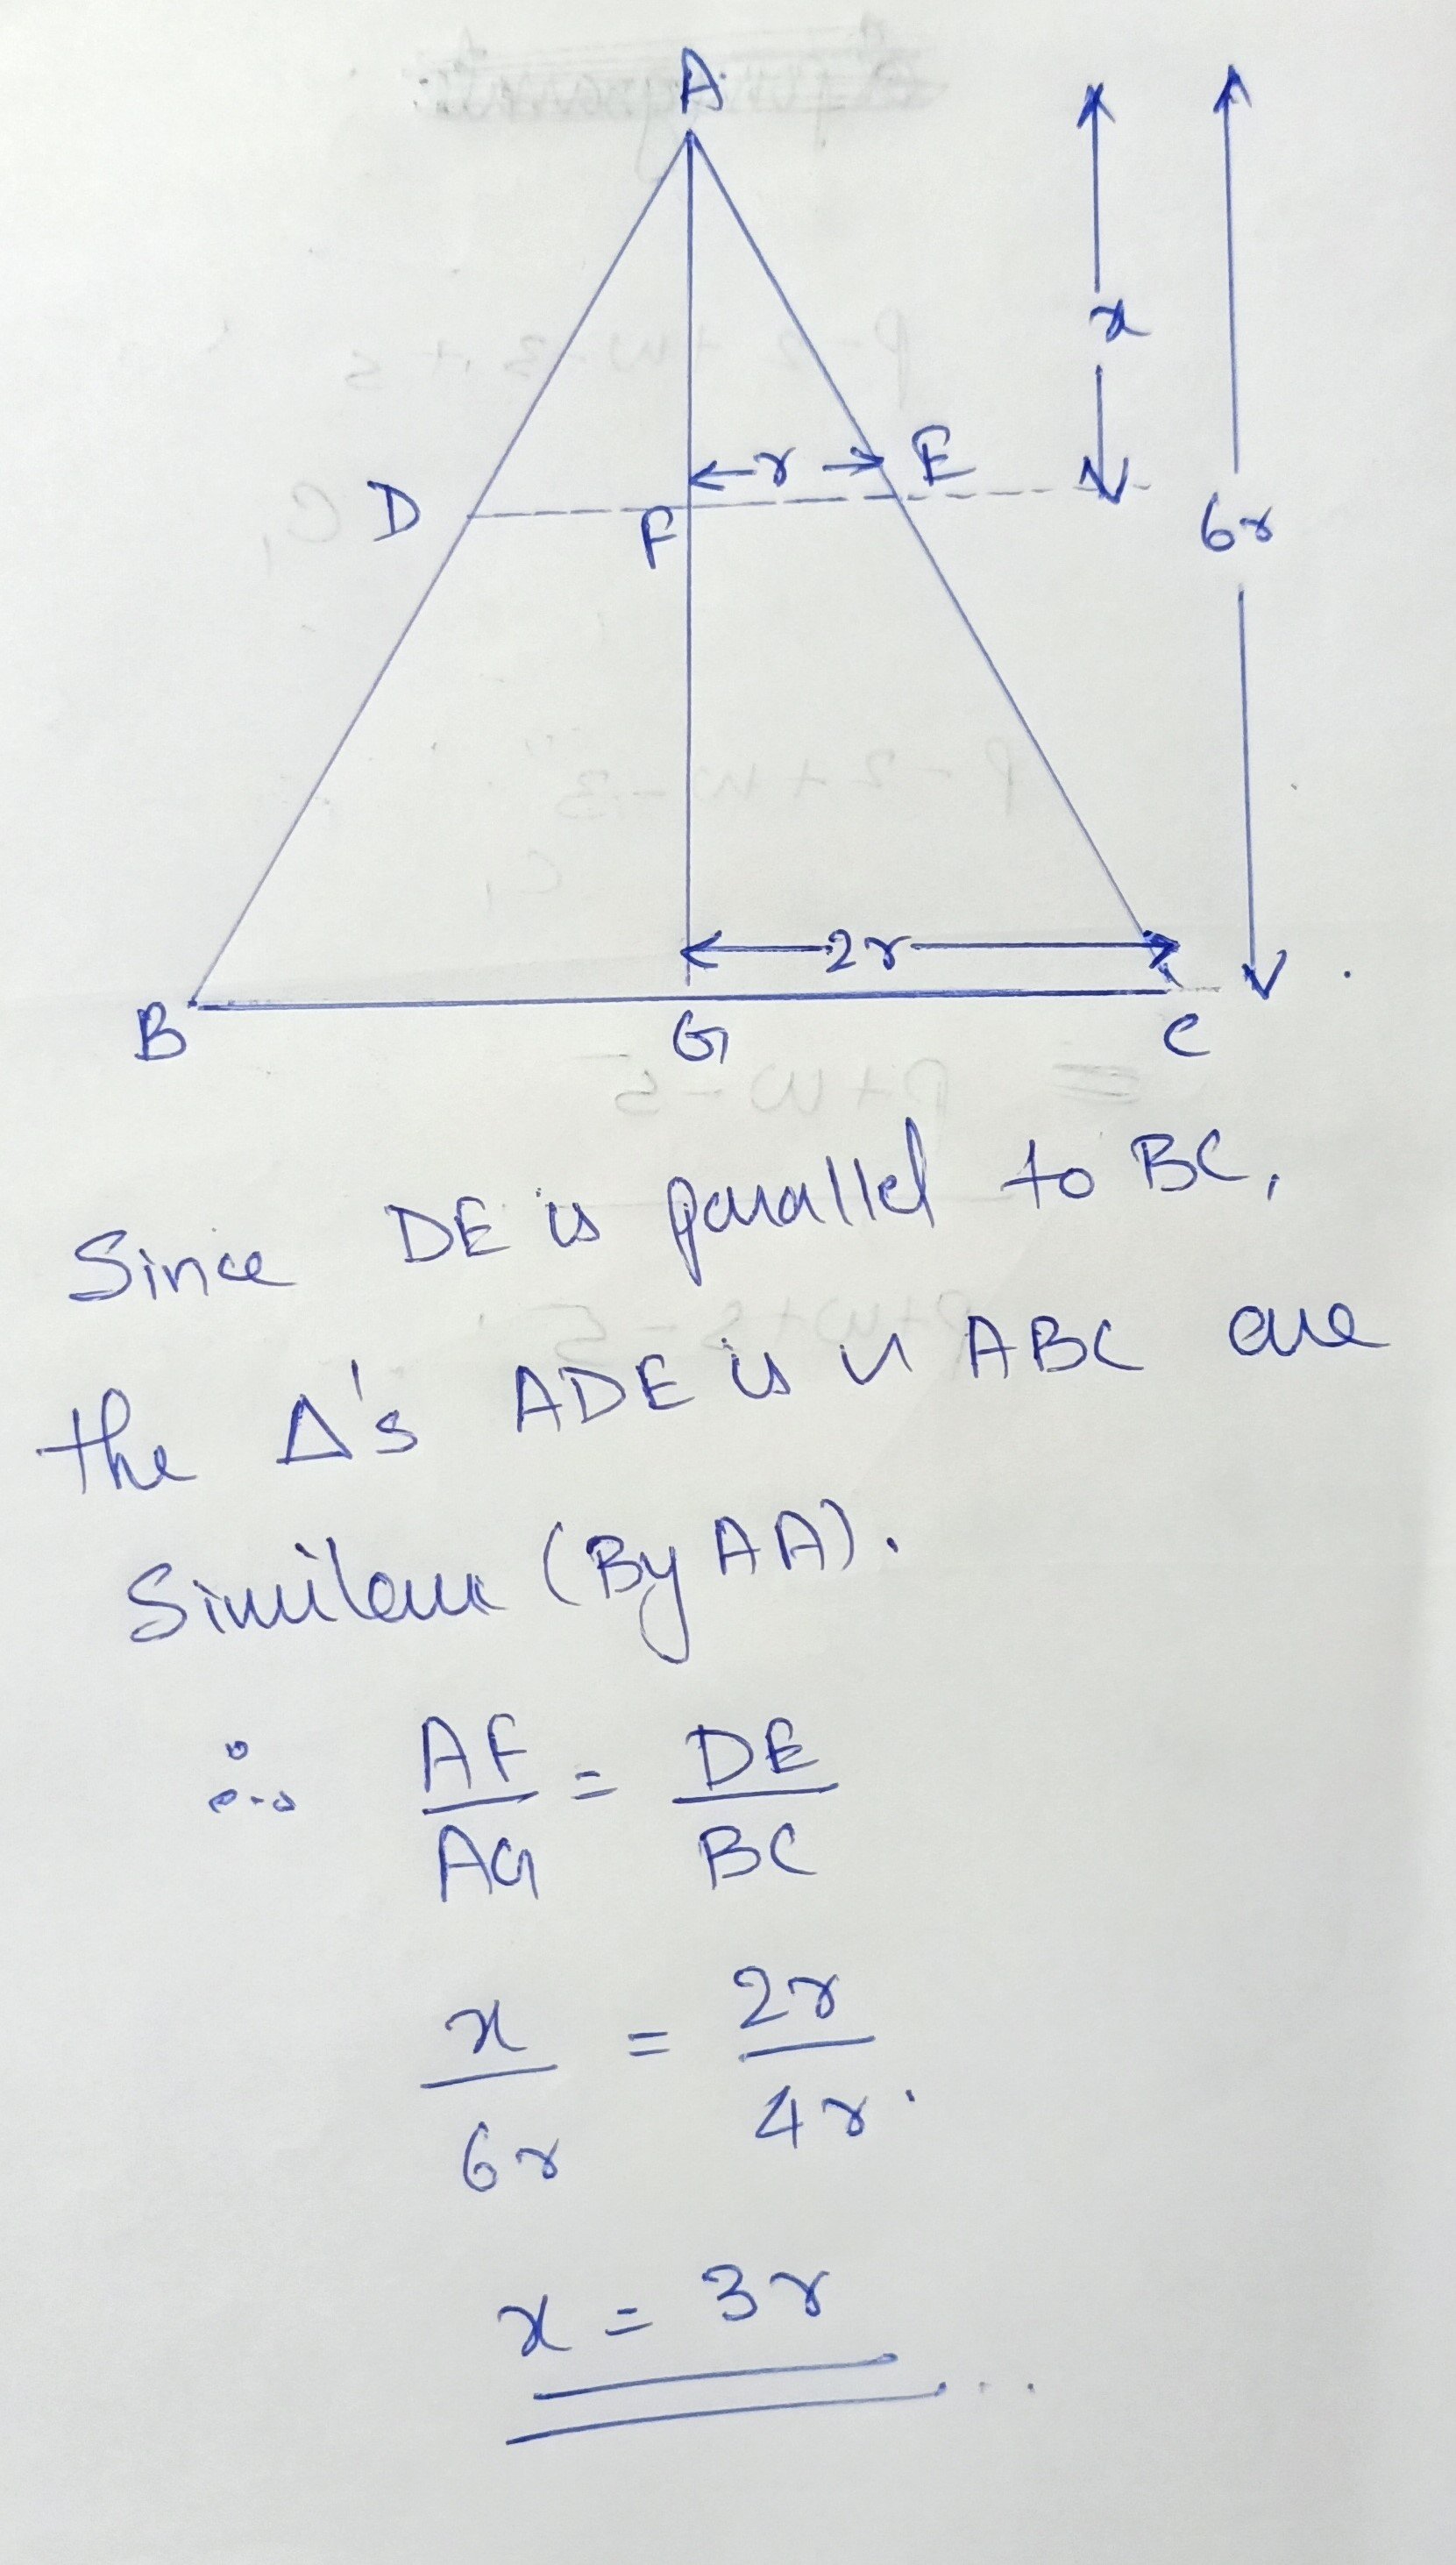 A
x
D
r
E
F
6r
2r
B
G
C
Since DE is parallel to BC,
the Δ's ADE is ABC are
Similar (By AA).
∴ AF/AG = DE/BC
x/6r = 2r/4r.
x = 3r